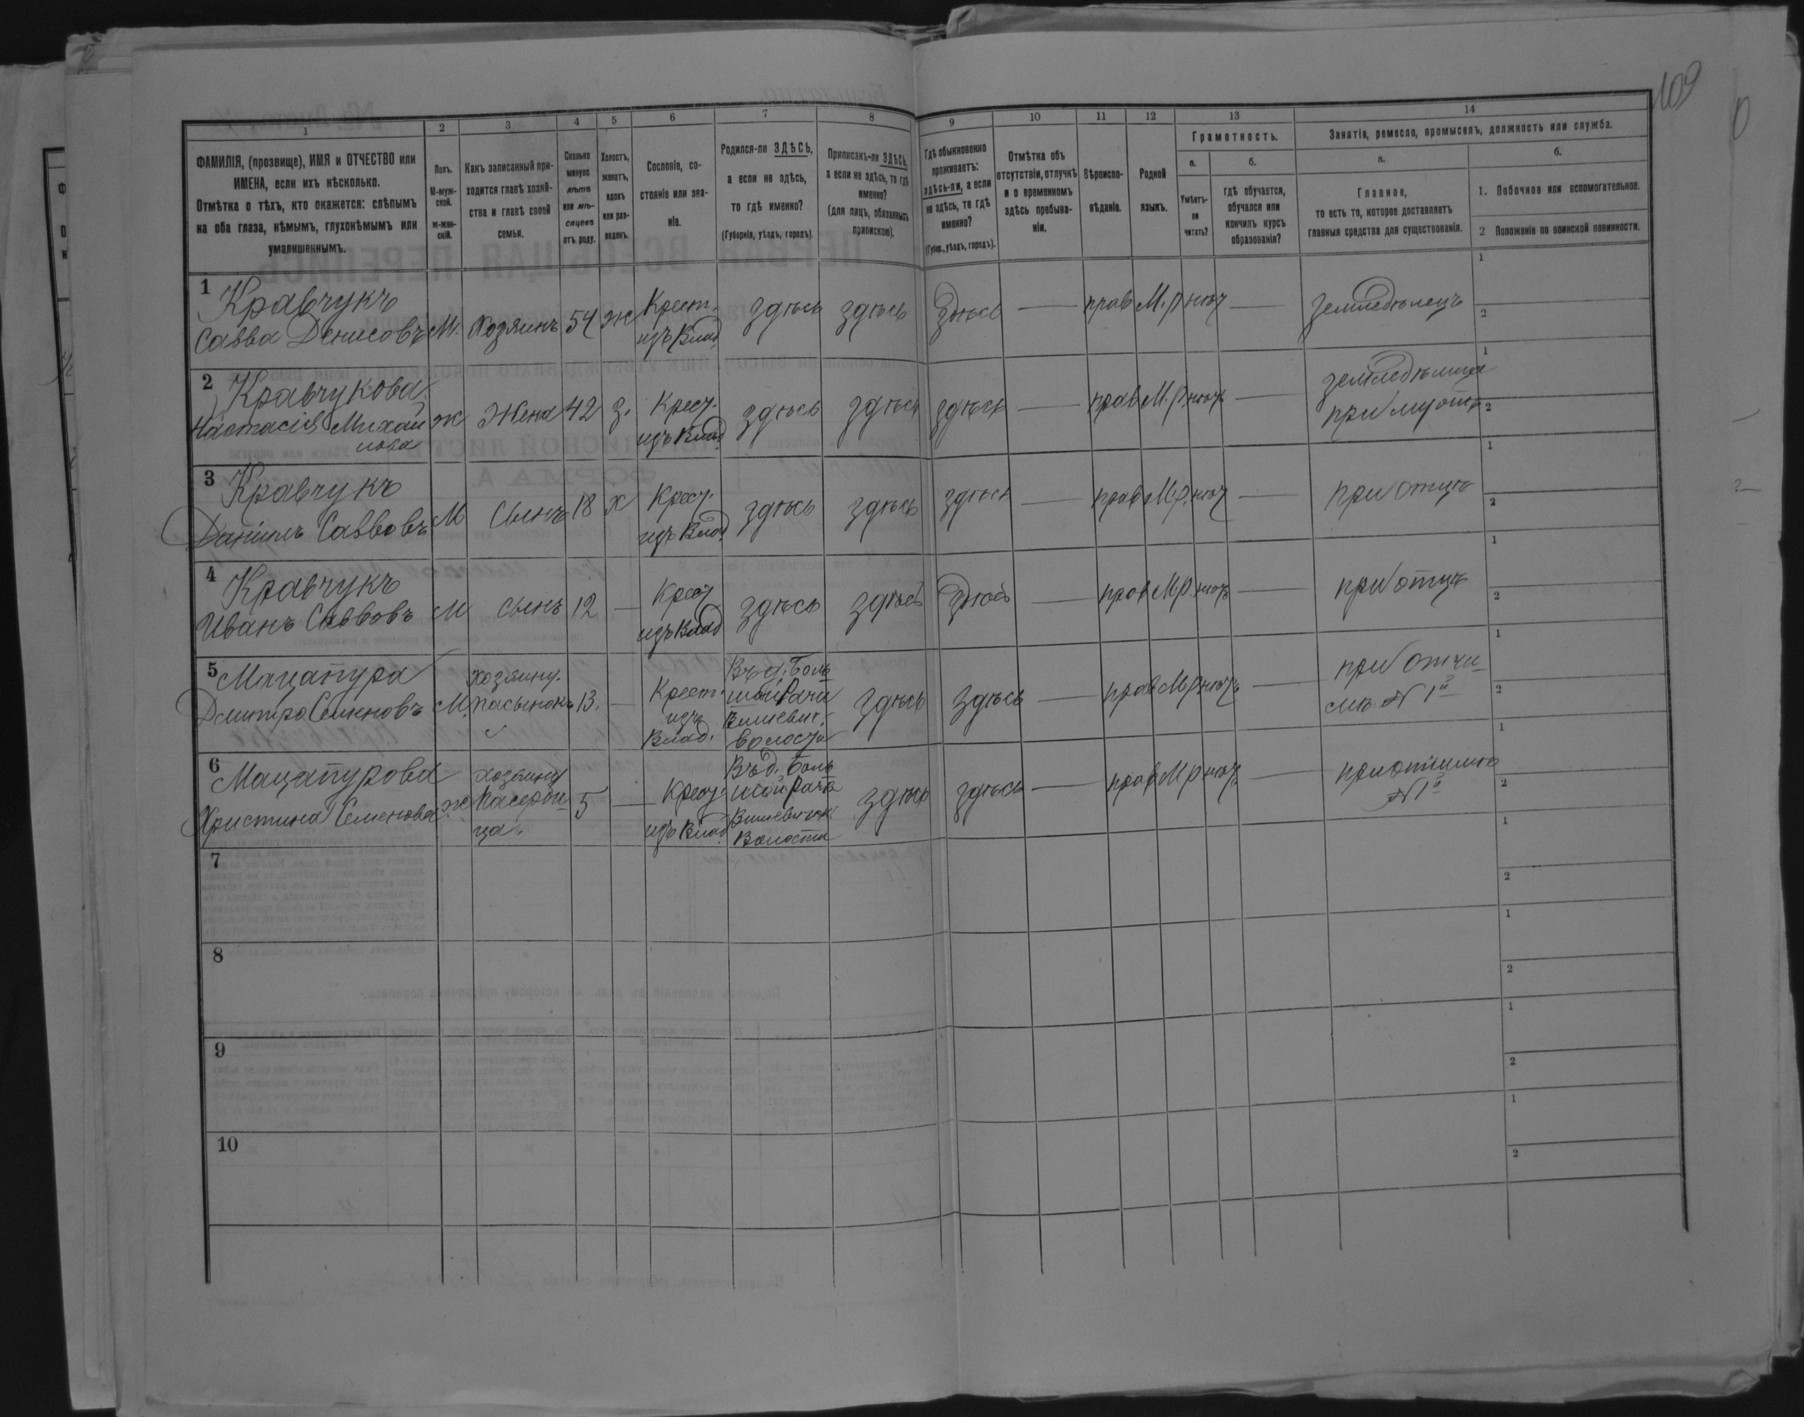 109
1
2
3
4
5
6
7
8
9
10
11
12
13
14
ФАМИЛІЯ, (прозвище), ИМЯ и ОТЧЕСТВО или
ИМЕНА, если ихъ нѣсколько.
Отмѣтка о тѣхъ, кто окажется: слѣпымъ
на оба глаза, нѣмымъ, глухонѣмымъ или
умалишеннымъ.
Полъ.
М-муж-
ской.
Ж-жен-
скій.
Какъ записанный при-
ходится главѣ хозяй-
ства и главѣ своей
семьи.
Сколько
минуло
лѣтъ
или мѣ-
сяцевъ
отъ роду.
Холостъ,
женатъ,
вдовъ
или раз-
веденъ.
Сословіе, со-
стояніе или зва-
ніе.
Родился-ли ЗДѢСЬ,
а если не здѣсь,
то гдѣ именно?
(Губернія, уѣздъ, городъ).
Приписанъ-ли ЗДѢСЬ,
а если не здѣсь, то гдѣ
именно?
(для лицъ, обязанныхъ
припиской).
Гдѣ обыкновенно
проживаетъ:
здѣсь-ли, а если
не здѣсь, то гдѣ
именно?
(Губер., уѣздъ, городъ).
Отмѣтка объ
отсутствіи, отлучкѣ
и о временномъ
здѣсь пребыва-
ніи.
Вѣроиспо-
вѣданіе.
Родной
языкъ.
Грамотность.
а.
Умѣетъ-
ли
читать?
б.
гдѣ обучается,
обучался или
кончилъ курсъ
образованія?
Занятіе, ремесло, промыселъ, должность или служба.
а.
Главное,
то есть то, которое доставляетъ
главныя средства для существованія.
б.
1. Побочное или вспомогательное.
2 Положеніе по воинской повинности.
1 Кравчукъ
Савва Денисовъ М. Хозяинъ 54 ж Крест. изъ Влад здѣсь здѣсь здѣсь — прав М.р нѣт — земледѣлецъ 1 2
2 Кравчукова
Настасія Михай
лова ж Жена 42 з. Крест. изъ Влад. здѣсь здѣсь здѣсь — прав М.р нѣт — при мужѣ 1 2
3 Кравчукъ
Даніилъ Саввовъ М Сынъ 18 х Крест. изъ Влад здѣсь здѣсь здѣсь — прав М.р нѣт — при отцѣ 1 2
4 Кравчукъ
Иванъ Саввовъ М сынъ 12 — Крест изъ Влад здѣсь здѣсь здѣсь — прав М.р нѣт — при отцѣ 1 2
5 Мацапура
Дмитро Семеновъ М. хозяину. пасынокъ 13. — Крест. изъ Влад. Въ д. Боль
шой Рачи
волости здѣсь здѣсь — прав М.р нѣтъ — при отчи
мѣ №1й 1 2
6 Мацапурова
Христина Семенова ж хозяину падчери
ца. 5 — Крест изъ Влад. Въ д. Боль
шой Рачѣ
волости здѣсь здѣсь — прав М р нѣт — при отчимѣ
№1й 1 2
7 1 2
8 1 2
9 1 2
10 1 2